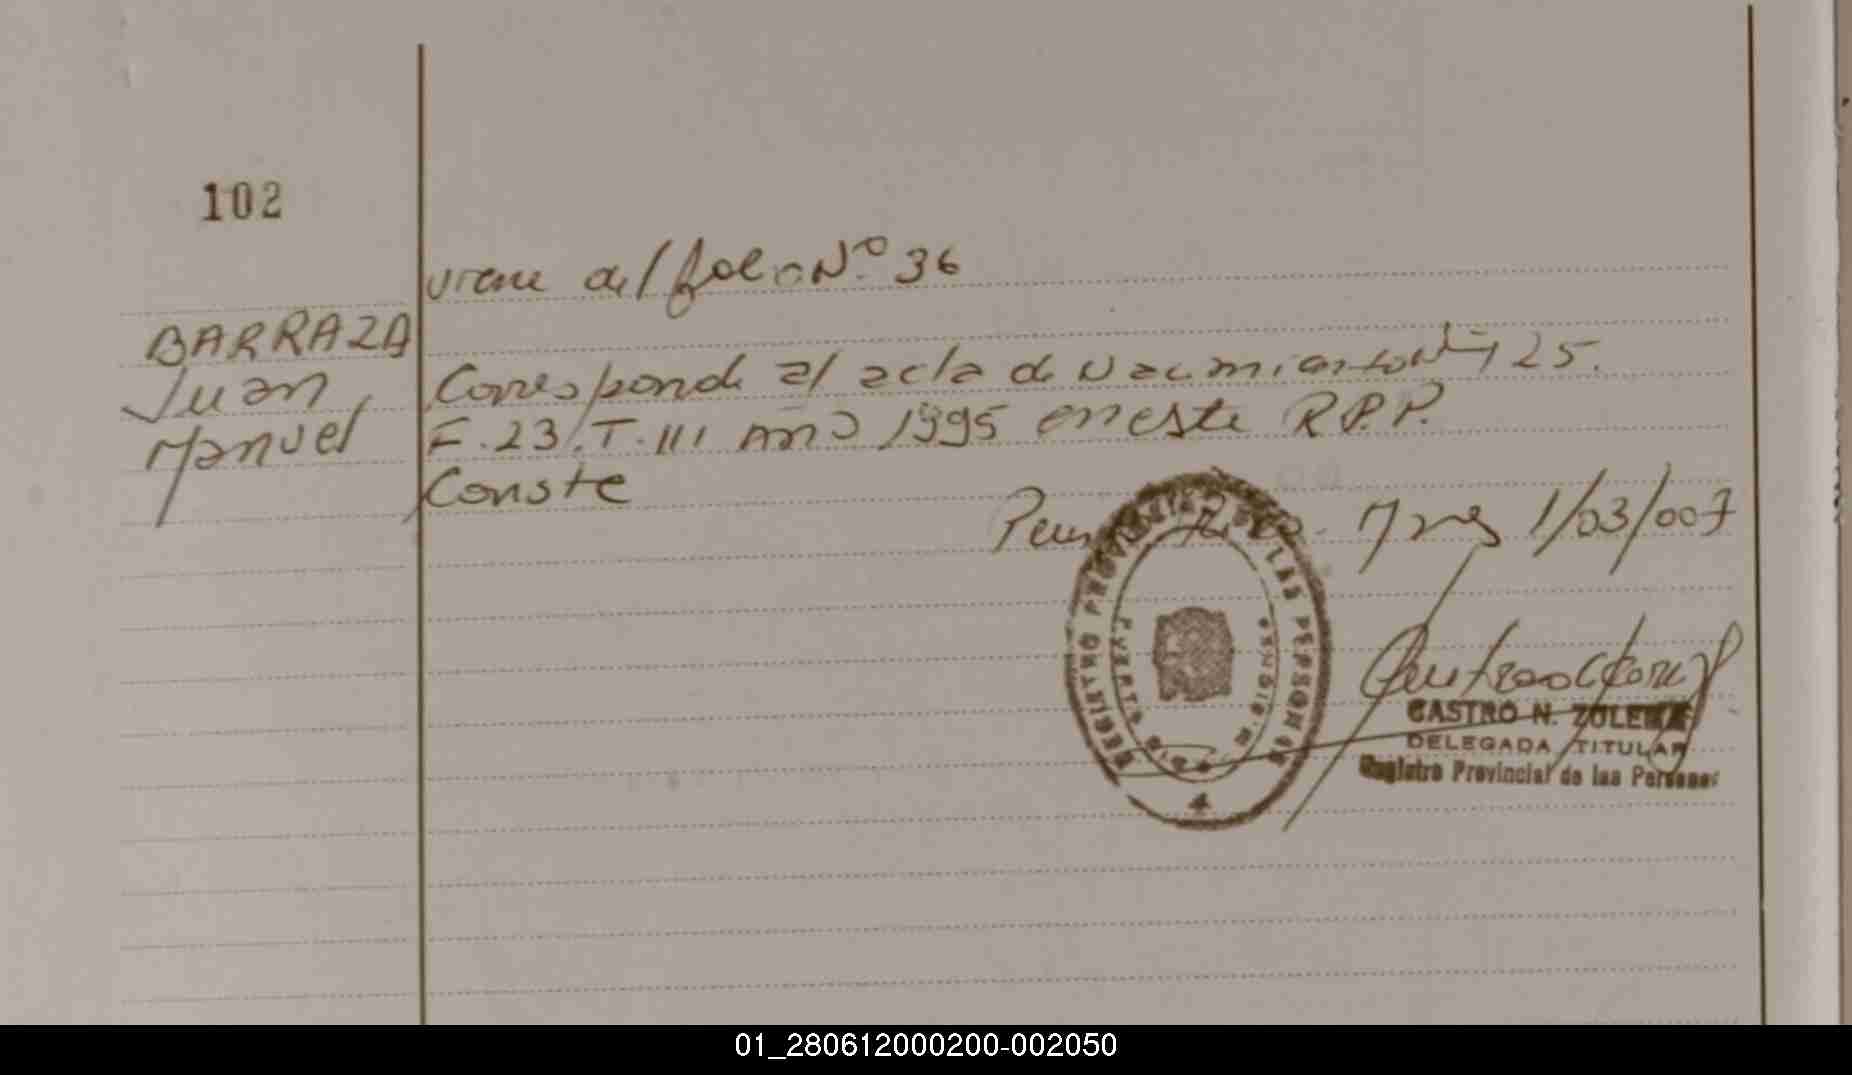 102
viene del folio Nº 36
BARRAZA
Juan
Manuel
Corresponde al acta de Nacimiento Nº 125.
F. 23. T. III Año 1995 en este R.P.P.
Conste
1/03/007
REGISTRO PROVINCIAL DE LAS PERSONAS
PUERTO RIO
4
CASTRO N. ZULEMA
DELEGADA TITULAR
Registro Provincial de las Personas
01_280612000200-002050